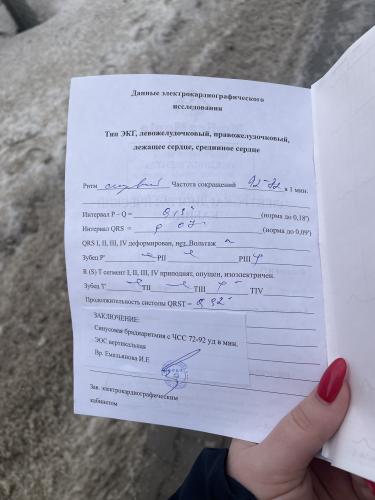 Данные электрокардиографического
исследования
Тип ЭКГ, левожелудочковый, правожелудочковый,
лежащее сердце, срединное сердце
Ритм Частота сокращений 92-72 в 1 мин.
Интервал P – Q = 0,13" (норма до 0,18")
Интервал QRS = 0,07 (норма до 0,09")
QRS I, II, III, IV деформирован, нет. Вольтаж
Зубец P' PII PIII
R (S) T сегмент I, II, III, IV приподнят, опущен, изоэлектричен.
Зубец T' TII TIII TIV
Продолжительность систолы QRST=
ЗАКЛЮЧЕНИЕ:
Синусовая брадиаритмия с ЧСС 72-92 уд в мин.
ЭОС вертикальная
Вр. Емельянова И.Е
Зав. электрокардиографическим
кабинетом